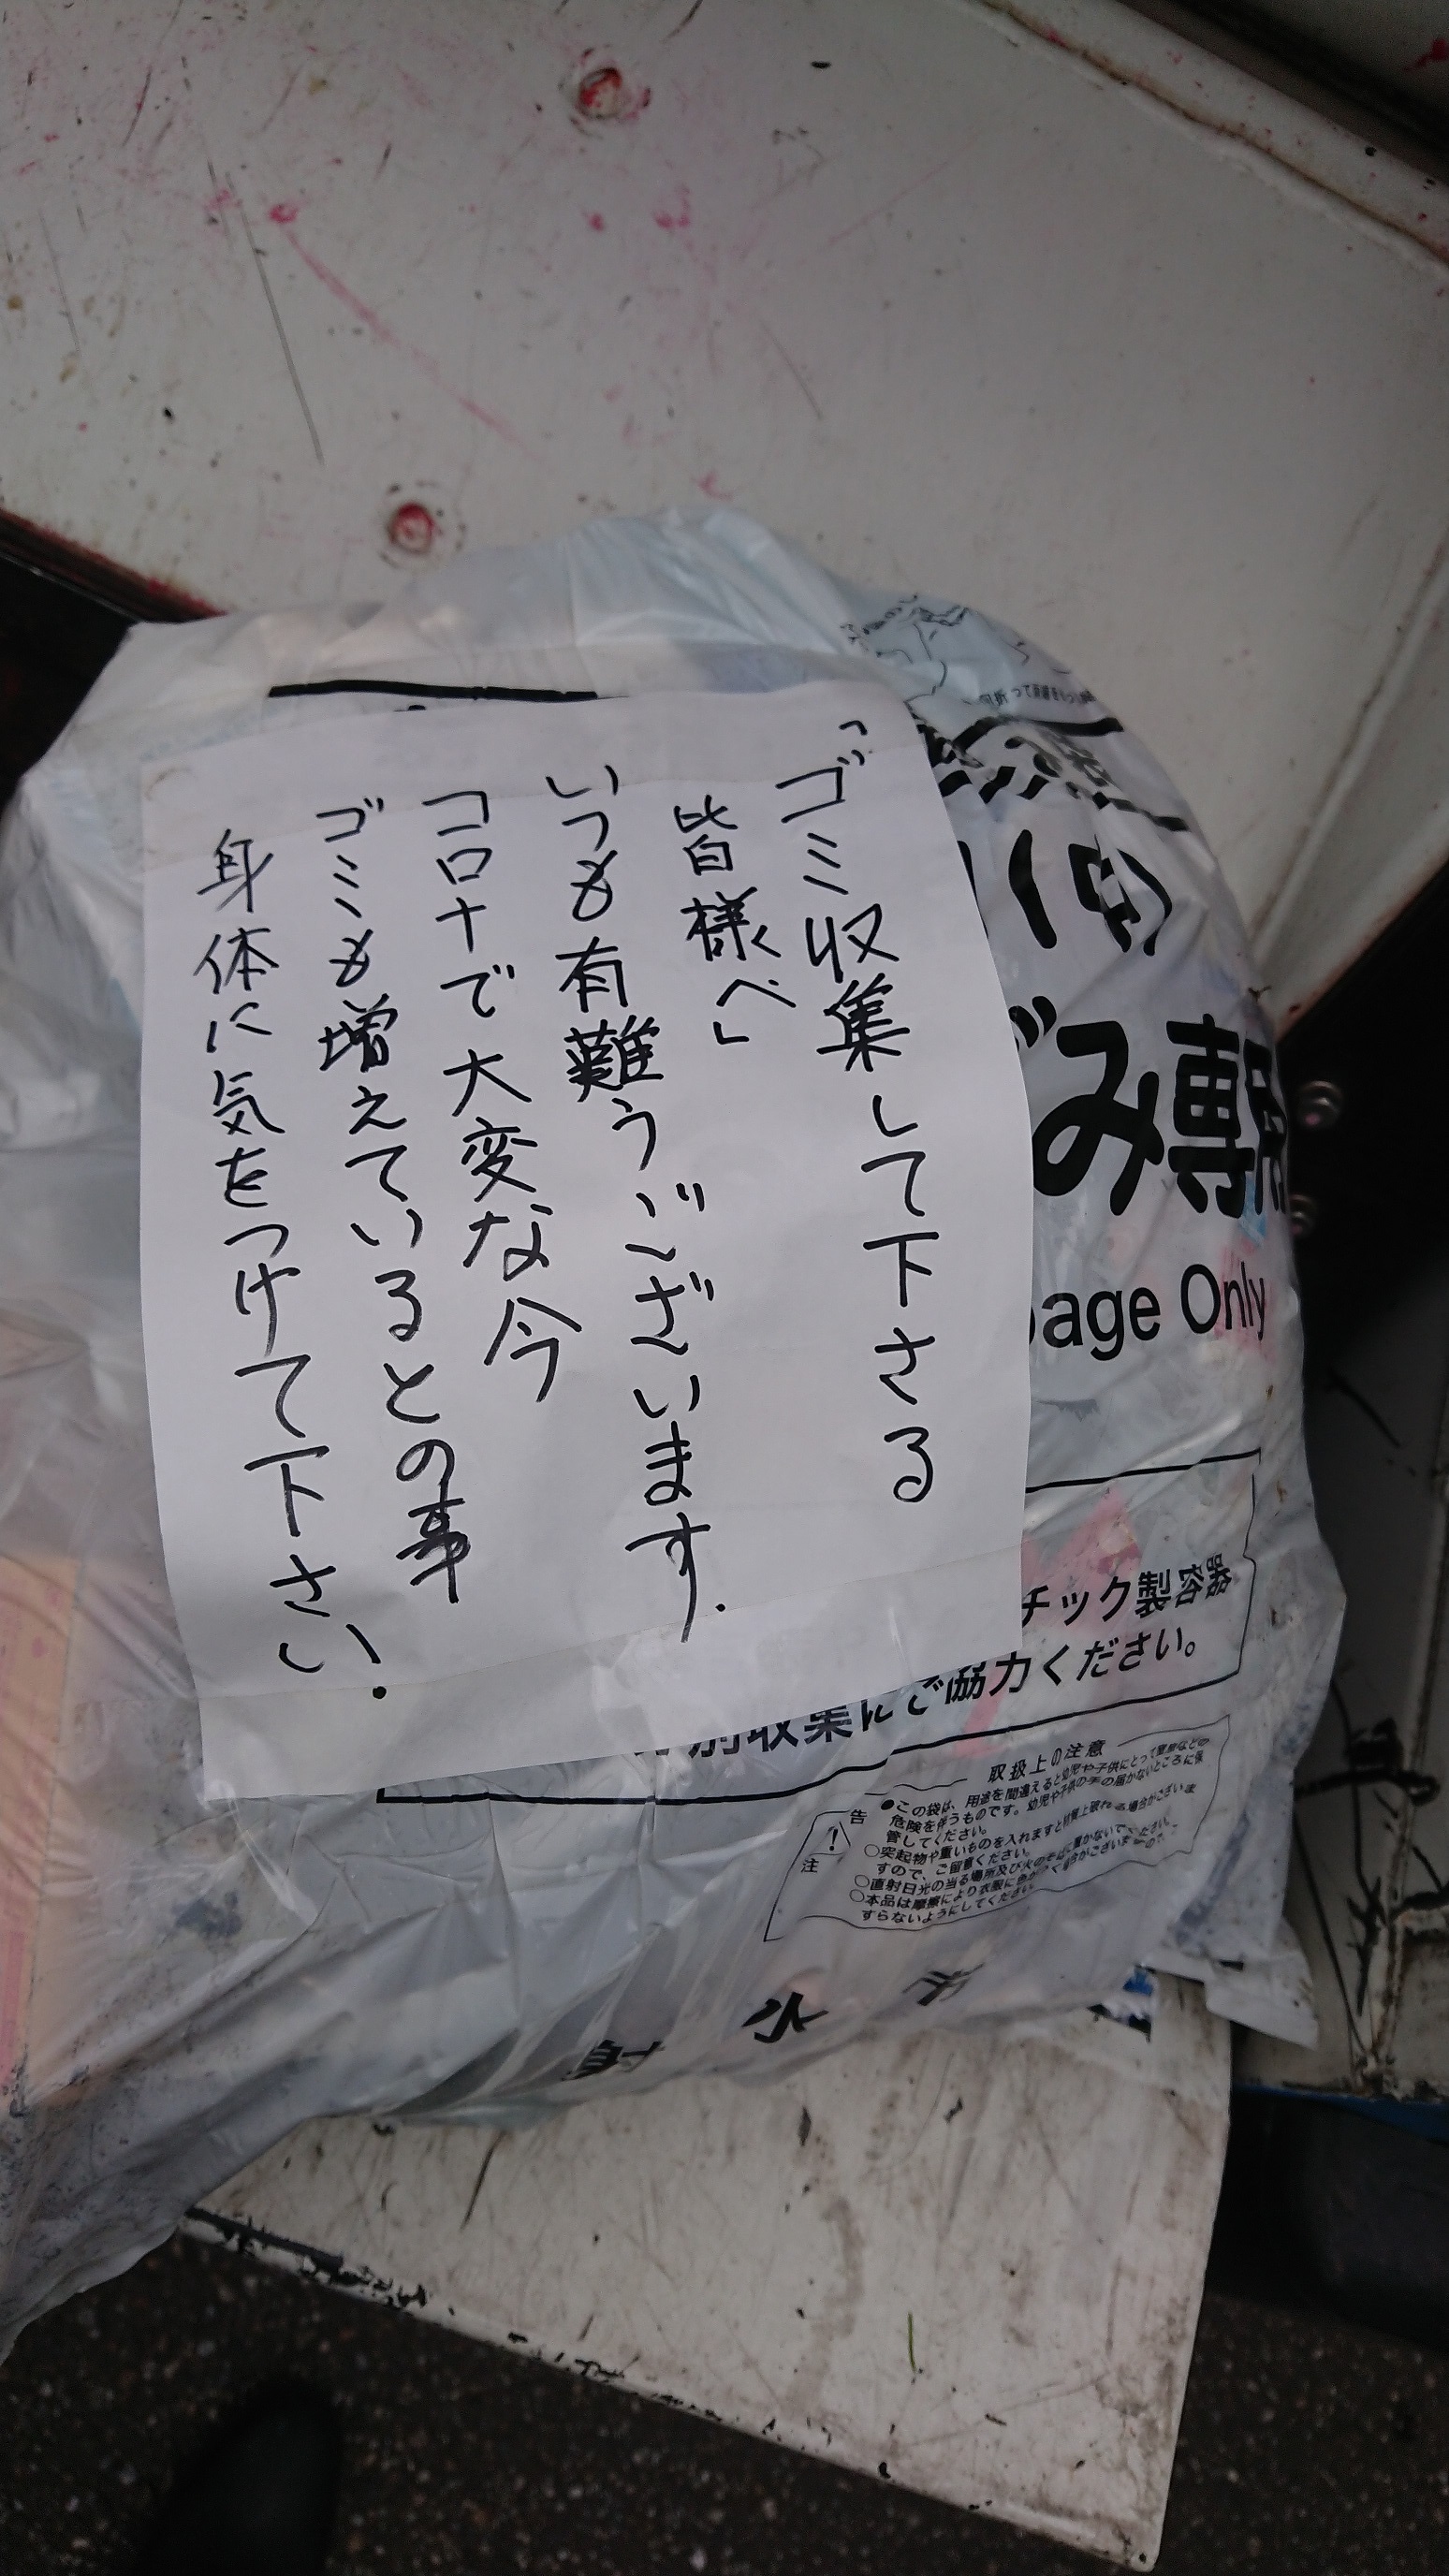 「ゴミ収集して下さる
皆様へ」
いつも有難うございます.
コロナで大変な今
ゴミも増えているとの事
身体に気をつけて下さい.
み専用
age Only
チック製容器
別収集にご協力ください。
取扱上の注意
●この袋は、用途を間違えると幼児や子供にとって窒息などの
危険を伴うものです。幼児や子供の手の届かないところに保
管してください。
○突起物や重いものを入れますと材質上破れる場合がございま
すので、ご留意ください。
○直射日光の当る場所及び火のそばに置かないでください。
○本品は摩擦により衣服に色がつく場合がございますので、こ
すらないようにしてください。